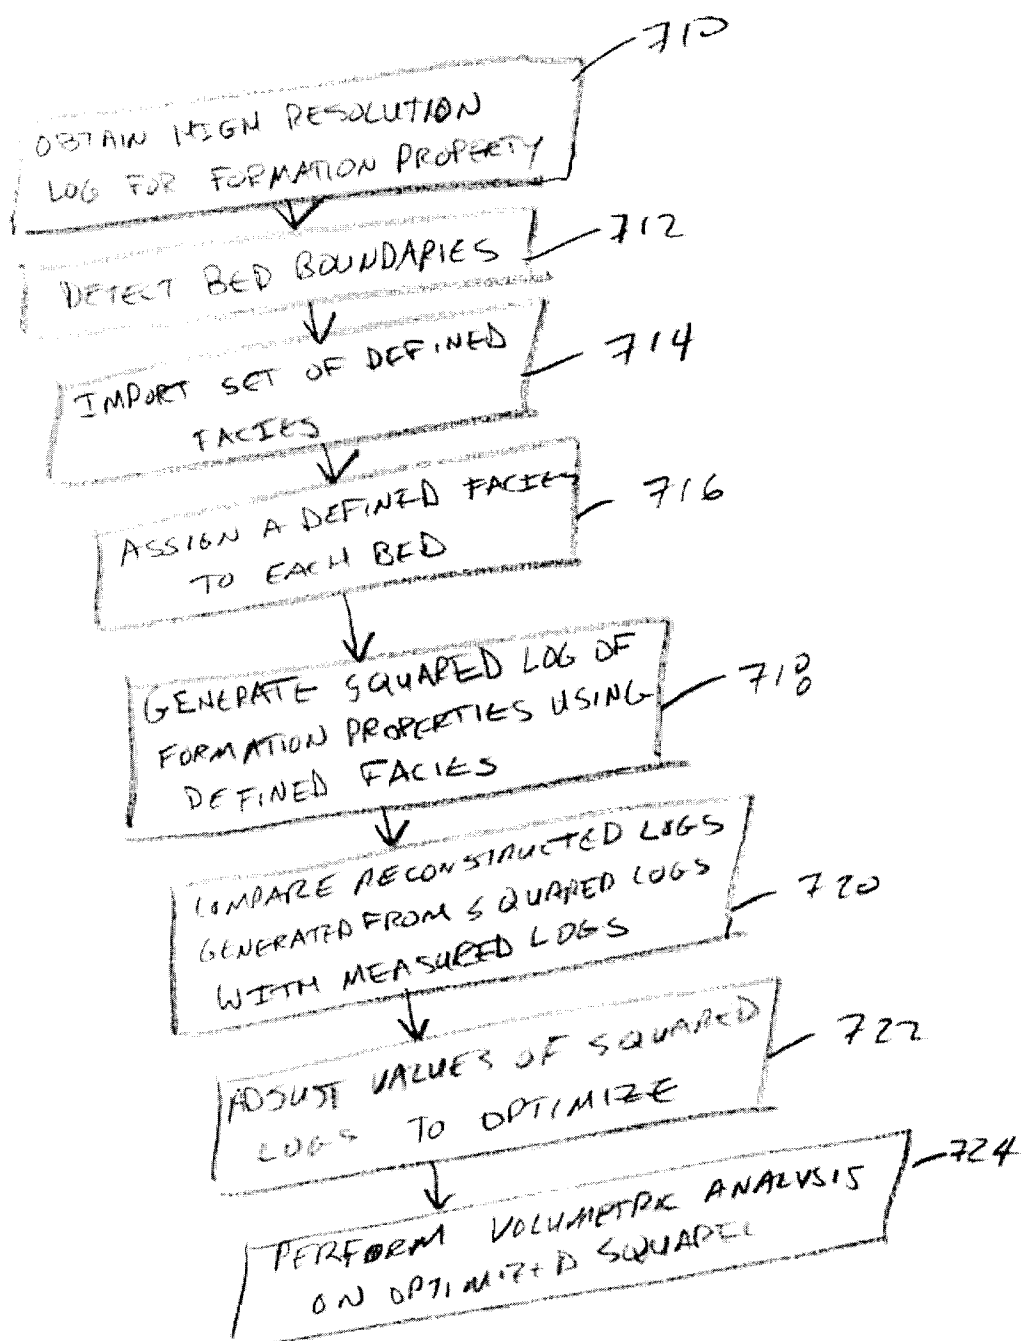 710
OBTAIN HIGH RESOLUTION
LOG FOR FORMATION PROPERTY
712
DETECT BED BOUNDARIES
714
IMPORT SET OF DEFINED
FACIES
716
ASSIGN A DEFINED FACIES
TO EACH BED
718
GENERATE SQUARED LOG OF
FORMATION PROPERTIES USING
DEFINED FACIES
720
COMPARE RECONSTRUCTED LOGS
GENERATED FROM SQUARED LOGS
WITH MEASURED LOGS
722
ADJUST VALUES OF SQUARED
LOGS TO OPTIMIZE
724
PERFORM VOLUMETRIC ANALYSIS
ON OPTIMIZED SQUARED